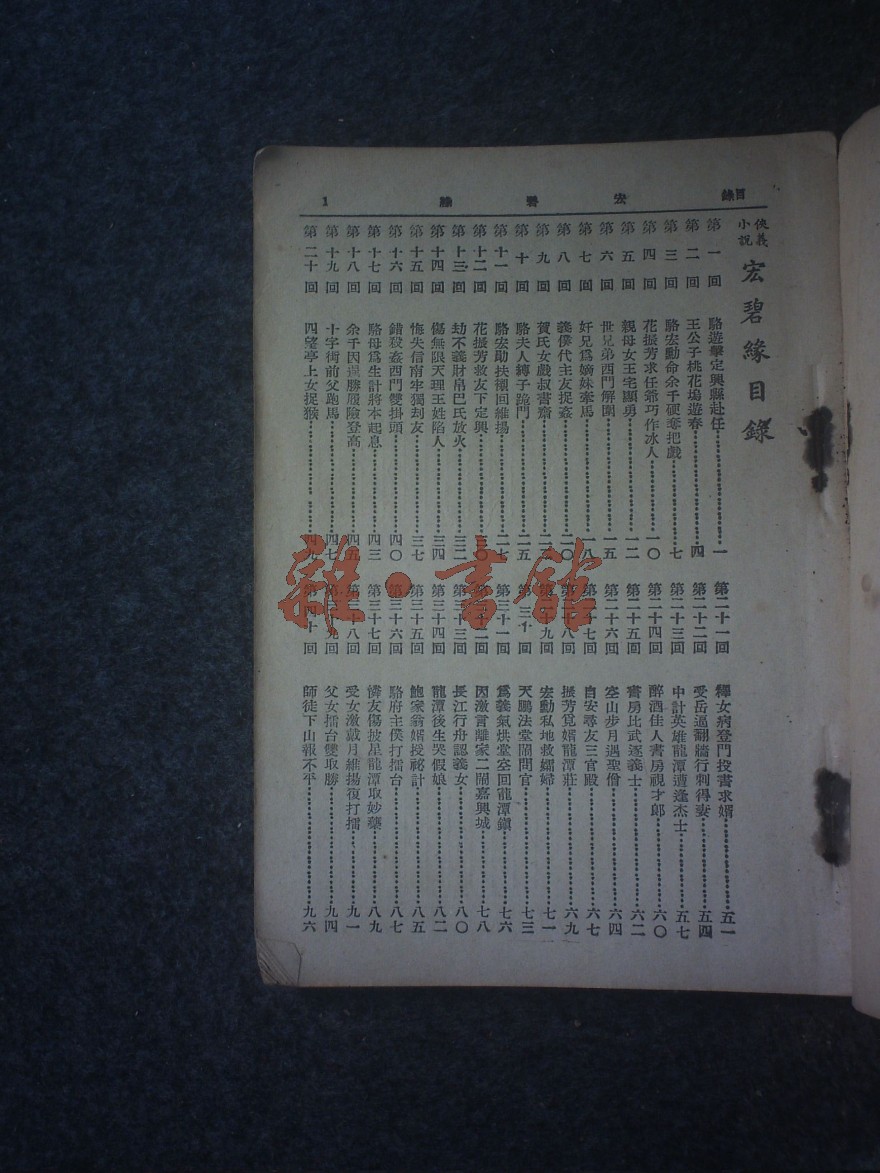 目錄 宏碧緣 1
俠義小說 宏碧緣目錄
第一回 駱遊擊定興縣赴任 一
第二回 王公子桃花塢遊春 四
第三回 駱宏勳命余千硬奪把戲 七
第四回 花振芳求任爺巧作冰人 一〇
第五回 親母女王宅顯勇 一二
第六回 世兄弟西門解圍 一五
第七回 奸兄爲嫡妹牽馬 一八
第八回 義僕代主友捉姦 二〇
第九回 賀氏女戲叔書齋 二三
第十回 駱夫人縛子跪門 二五
第十一回 駱宏勛扶櫬回維揚 二七
第十二回 花振芳救友下定興 三〇
第十三回 劫不義財帛巴氏放火 三二
第十四回 傷無限天理王姓陷人 三四
第十五回 悔失信南牢獨刦友 三七
第十六回 錯殺姦西門雙掛頭 四〇
第十七回 駱母爲生計將本起息 四三
第十八回 余千因逞勝履險登高 四五
第十九回 十字街前父跑馬 四七
第二十回 四望亭上女捉猴 四九
第二十一回 釋女病登門投書求婿 五一
第二十二回 受岳逼翻牆行刺得妻 五四
第二十三回 中計英雄龍潭遭逢杰士 五七
第二十四回 醉酒佳人書房視才郎 六〇
第二十五回 書房比武逐義士 六二
第二十六回 空山步月遇聖僧 六四
第二十七回 自安尋友三官殿 六七
第二十八回 振芳覓婿龍潭莊 六九
第二十九回 宏勳私地救孀婦 七一
第三十回 天鵬法堂鬧問官 七三
第三十一回 爲義氣烘堂空回龍潭鎮 七六
第三十二回 因激言離家二鬧嘉興城 七八
第三十三回 長江行舟認義女 八〇
第三十四回 龍潭後生哭假娘 八二
第三十五回 鮑家翁婿授祕計 八五
第三十六回 駱府主僕打擂台 八七
第三十七回 憐友傷披星龍潭取妙藥 八九
第三十八回 受女激戴月維揚復打擂 九一
第三十九回 父女擂台雙取勝 九四
第四十回 師徒下山報不平 九六
雜·書館